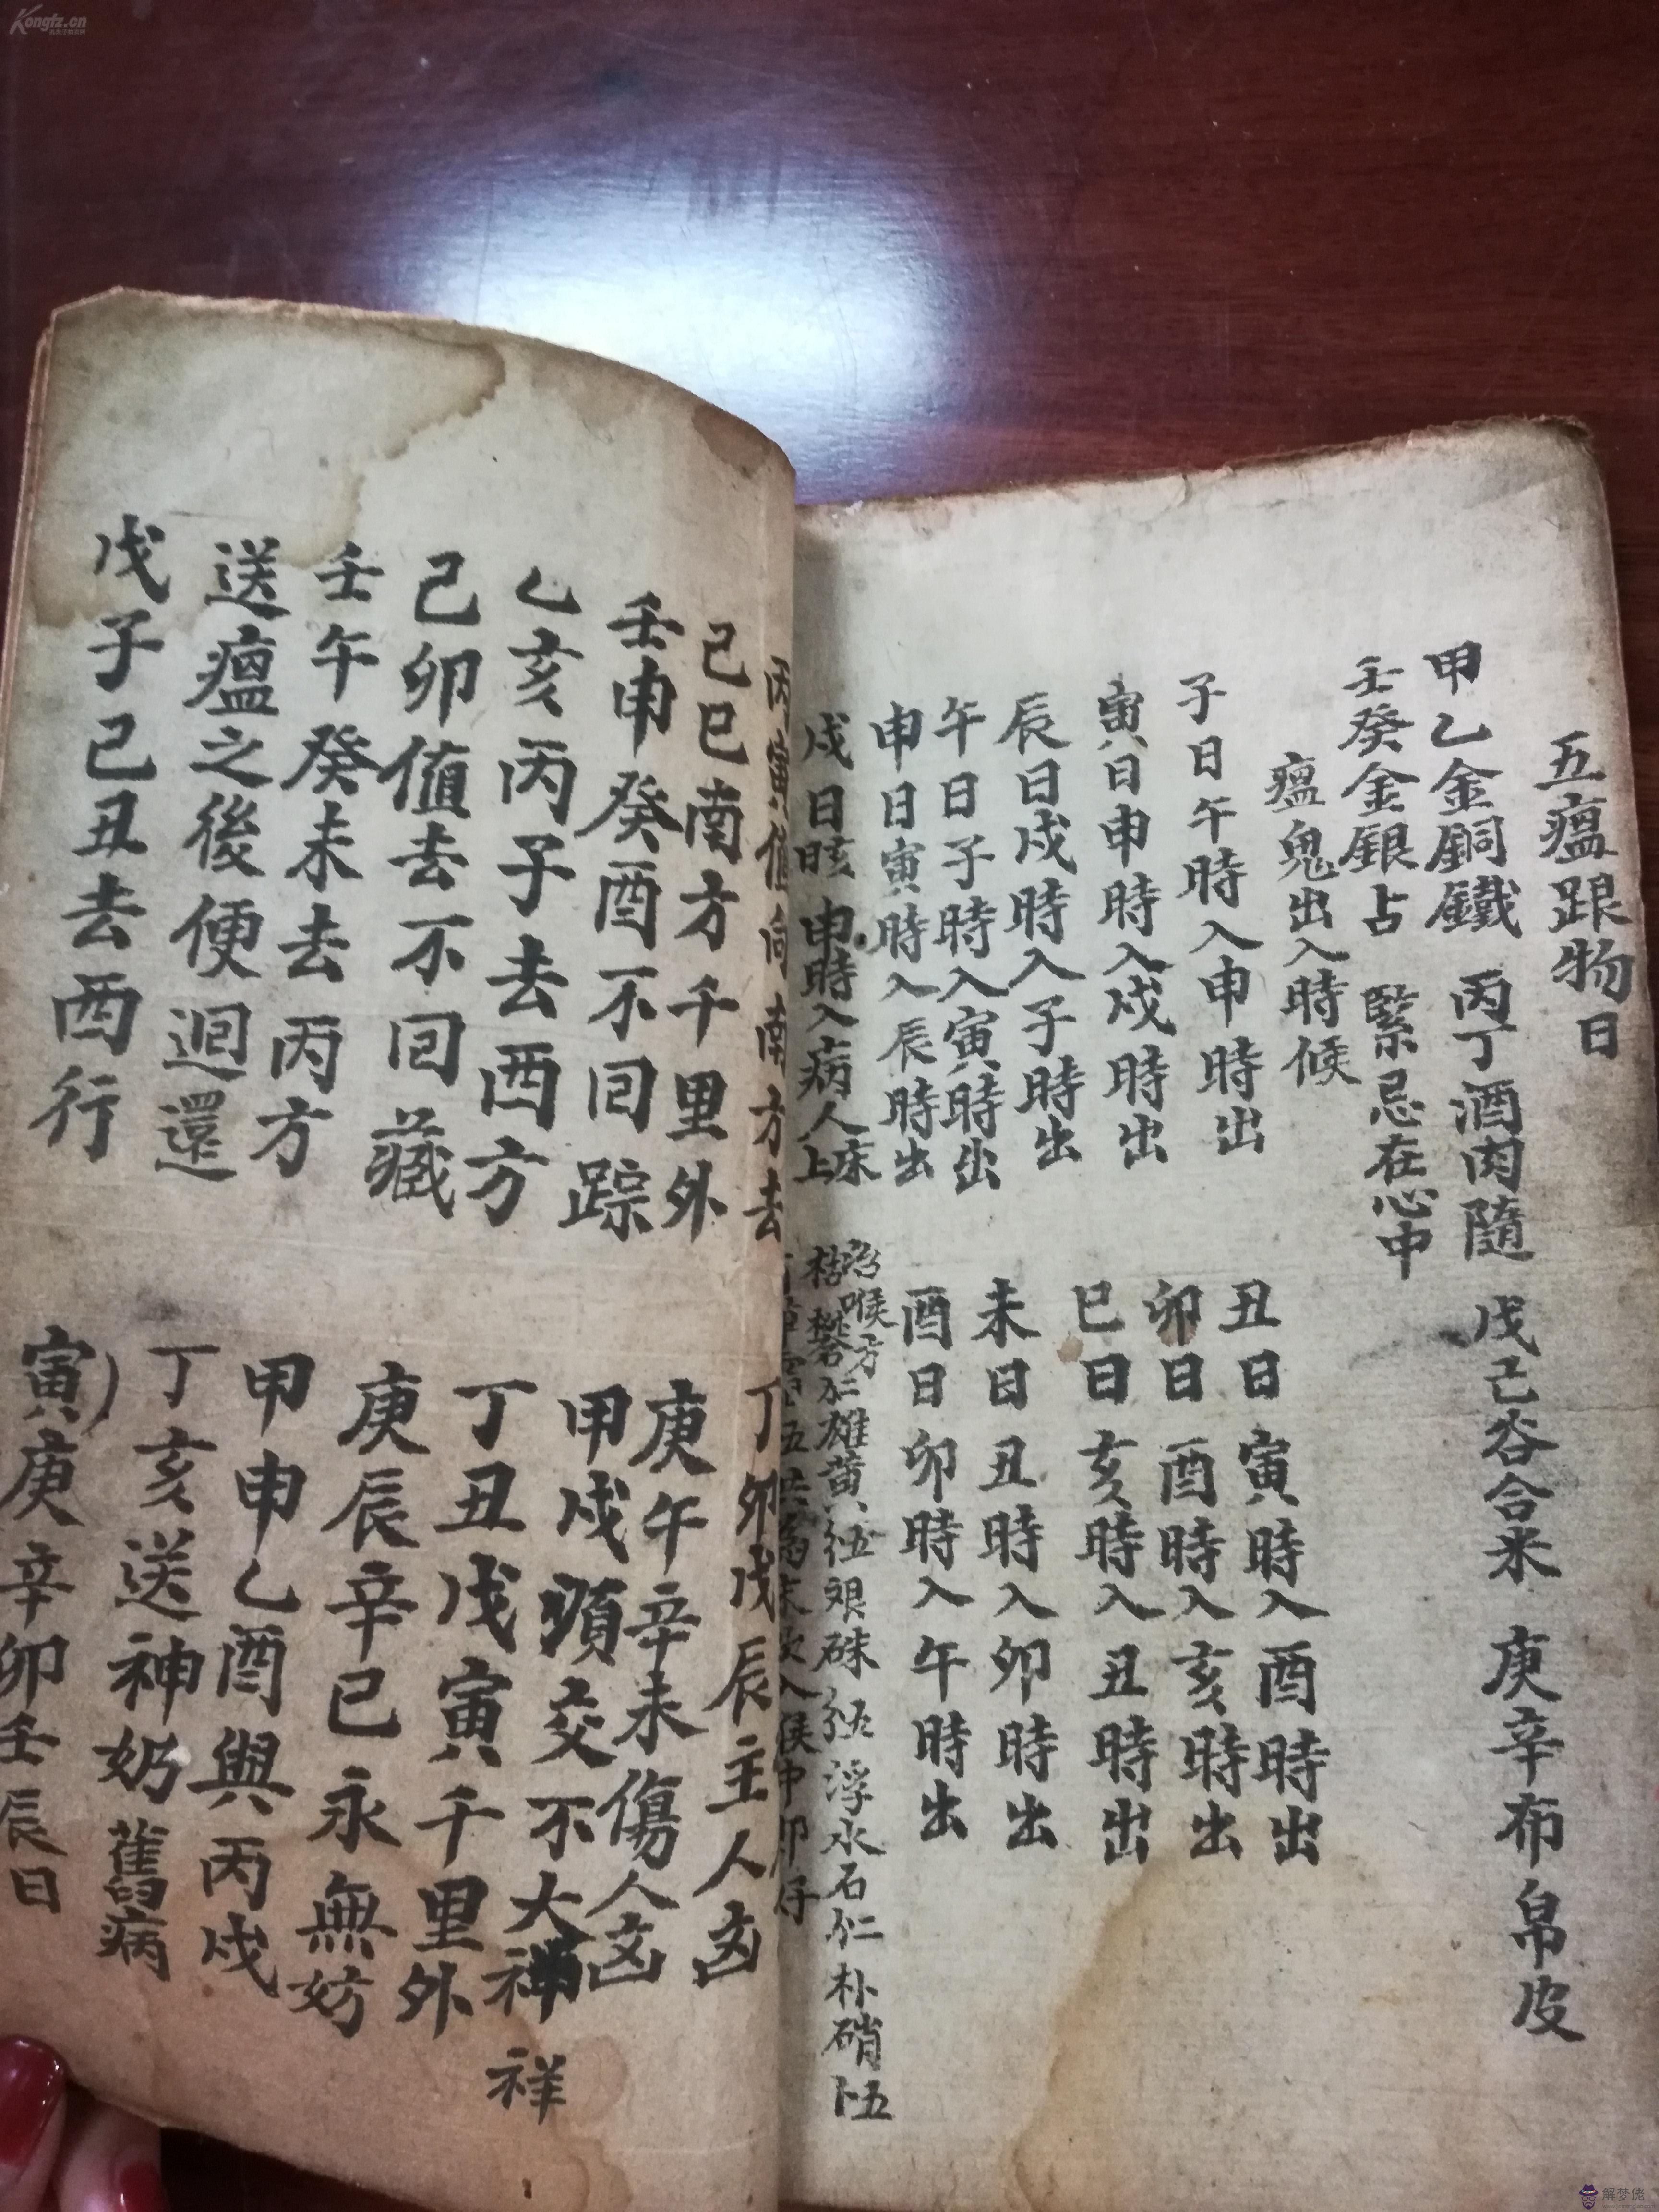 五瘟跟物日
甲乙金銅鐵 丙丁酒肉隨 戊己谷合米 庚辛布帛皮
壬癸金銀占 緊忌在心中
瘟鬼出入時候
子日午時入申時出 丑日寅時入酉時出
寅日申時入戌時出 卯日酉時入亥時出
辰日戌時入子時出 巳日亥時入丑時出
午日子時入寅時出 未日丑時入卯時出
申日寅時入辰時出 酉日卯時入午時出
戌日 申時入病人床上
治喉方
枯礬 雄黄 硃 浮水石 朴硝
丙寅值向南方去 丁卯戊辰主人凶
己巳南方千里外 庚午辛未傷人凶
壬申癸酉不回踪 甲戌須交不大祥
乙亥丙子去西方 丁丑戊寅千里外
己卯值去不回藏 庚辰辛巳永無妨
壬午癸未去丙方 甲申乙酉與丙戌
送瘟之後便迴還 丁亥送神奶舊病
戊子己丑去西行 寅庚辛卯壬辰日
祥
Kongfz.cn
解梦佬